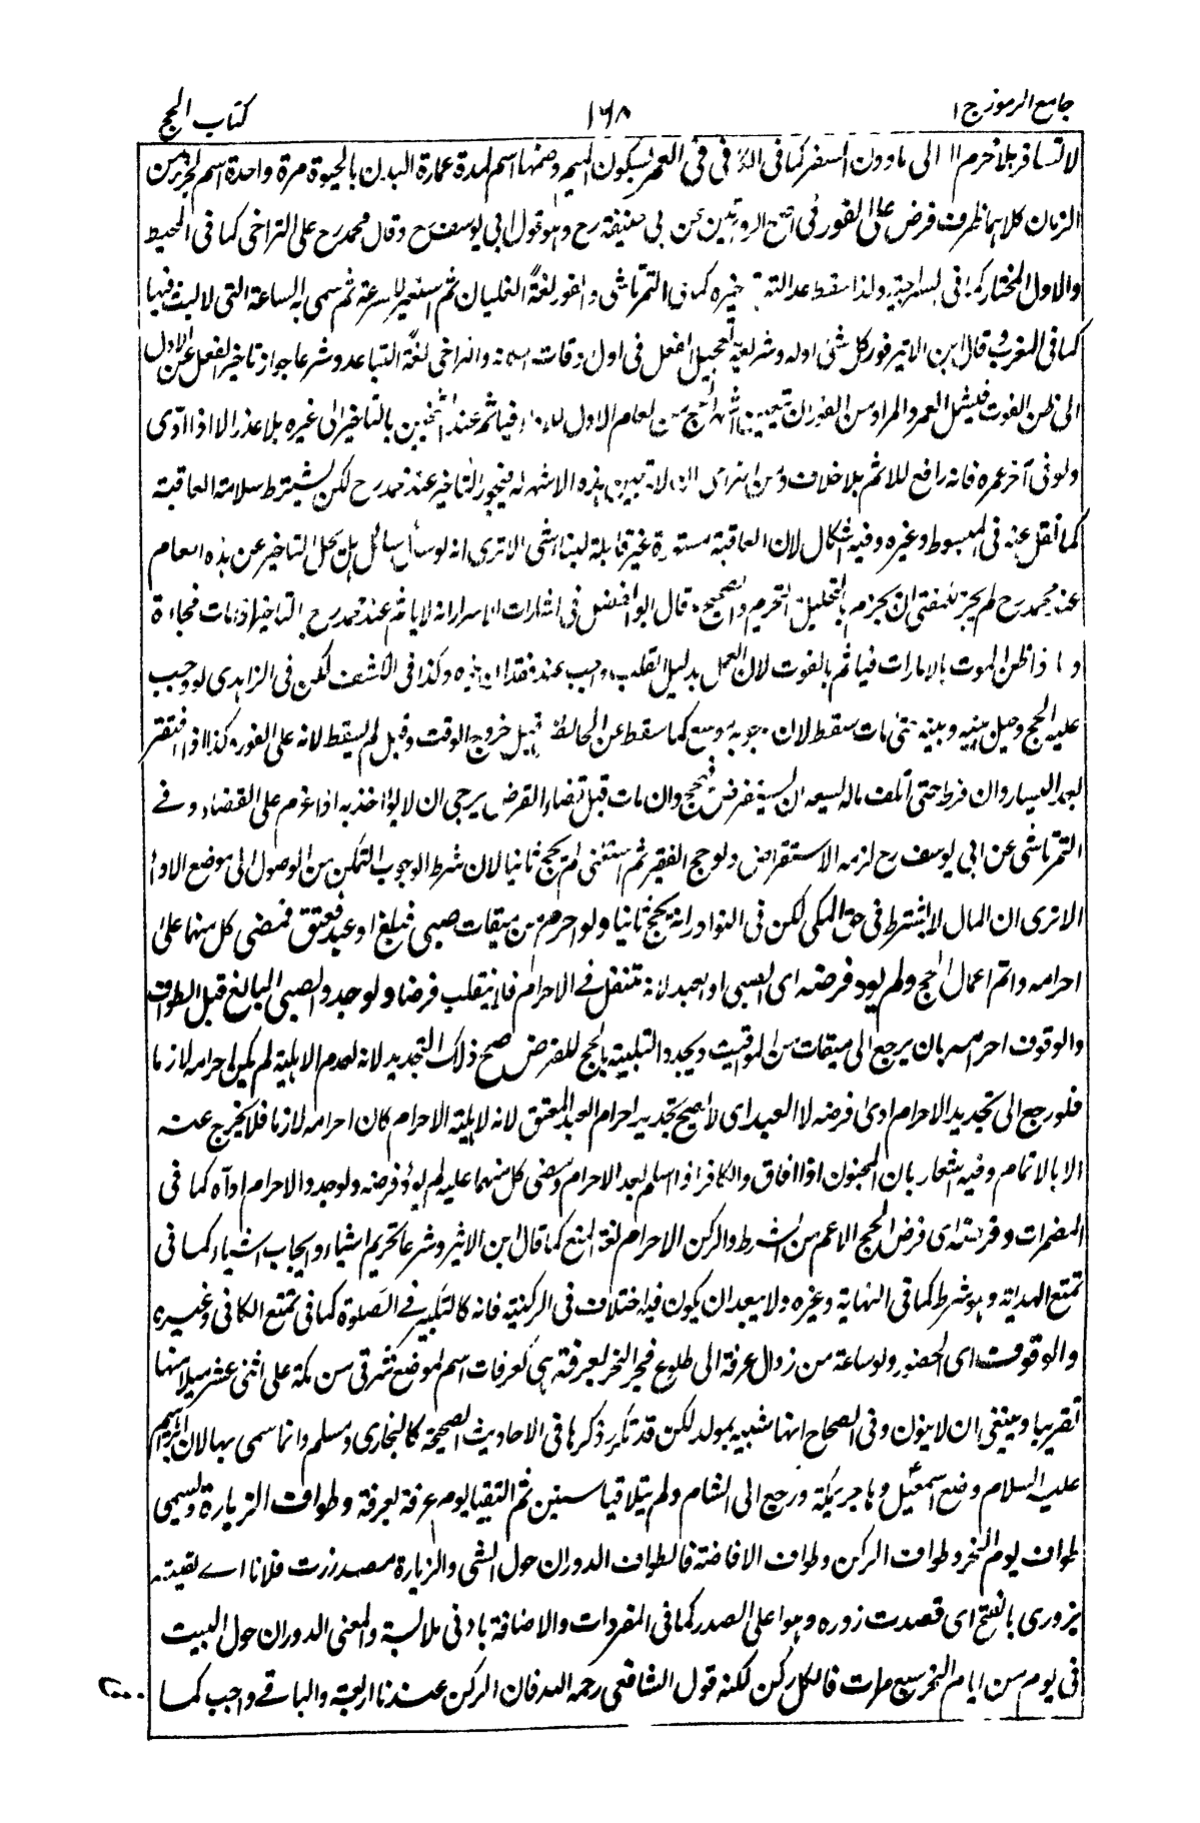 جامع الرموز ج ١
١٦٨
كتاب الحج
لا تسافر بلا محرم الى ما دون السفر كما فى فى العمر بسكون الميم وضمها اسم لمدة عمارة البدن بالحيوة مرة واحدة اسم لجزء من
الزمان كلاهما ظرف فرض على الفور فى اصح الروايتين عن ابى حنيفة رح وهو قول ابى يوسف رح وقال محمد رح على التراخى كما فى المحيط
والاول المختار كما فى السراجية ولذا سقط عدالته خيره كما فى التمرتاشى والفور لغة الغليان ثم استعير للسرعة ثم سمى به الساعة التى لا لبث فيها
كما فى المغرب وقال ابن الاثير فور كل شئ اوله وشريعة تعجيل الفعل فى اول اوقات والتراخى لغة التباعد وشرعا جواز تاخير الفعل عن الاول
الى ظن الفوت فيشمل العمر والمراد من الفور ان تعيين اشهر الحج من العام الاول فياثم عند الشيخين بالتاخير الى غيره بلا عذر الا اذا ادى
ولو فى آخر عمره فانه رافع للاثم بلا خلاف ومن التراخى ان لا تعيين هذه الاشهر له فيجوز التاخير عند محمد رح لكن يشترط سلامة العاقبة
كما نقل عنه فى المبسوط وغيره وفيه اشكال لان العاقبة مستورة غير قابلة لبناء شى الا ترى انه لو سأل سائل هل يحل التاخير عن هذه العام
عند محمد رح لم يجز للمفتى ان يجزم بالتحليل التحريم والصحيح ما قال ابو الفضل فى اشارات الاسرار انه لا ياثم عند محمد رح بالتاخير اذا مات فجاءة
واذا ظن الموت بالامارات فياثم بالفوت لان العمل بدليل القلب واجب عند فقدان غيره وكذا فى الكشف لكن فى الزاهدى لو وجب
عليه الحج وحيل بينه وبينه حتى مات سقط لان وجوبه موسع كما سقط عن الحائض قبيل خروج الوقت وقيل لم يسقط لانه على الفور كذا اذا افتقر
بعد اليسار وان فرط حتى اتلف ماله يسعه ان يستقرض فيحج وان مات قبل قضاء القرض يرجى ان لا يؤاخذ به اذا عزم على القضاء وفى
التمرتاشى عن ابى يوسف رح لزمه الاستقراض ولو حج الفقير ثم استغنى لم يحج ثانيا لان شرط الوجوب التمكن من الوصول الى موضع الاداء
الا ترى ان المال لا يشترط فى حق المكى لكن فى النوادر انه يحج ثانيا ولو احرم من ميقات صبى فبلغ او عبد فعتق فمضى كل منهما على
احرامه واتم اعمال الحج ولم يود فرضه اى الصبى او العبد لانه تنفل فى الاحرام فلا ينقلب فرضا ولو جدد الصبى البالغ قبل الطواف
والوقوف احرامه بان يرجع الى ميقات من المواقيت ويجدد التلبية بالحج للفرض صح ذلك التجديد لانه لعدم الاهلية لم يكن احرامه لازما
فلو رجع الى تجديد الاحرام ادى فرضه لا العبد اى لا يصح تجديد احرام العبد المعتق لانه لاهلية الاحرام كان احرامه لازما فلا يخرج عنه
الا بالاتمام وفيه اشعار بان المجنون اذا افاق والكافر اذا اسلم بعد الاحرام ومضى كل منهما عليه لم يؤد فرضه ولو جدد الاحرام ادآه كما فى
المضمرات وفرضه اى فرض الحج الاعم من الشرط والركن الاحرام لغة المنع كما قال ابن الاثير وشرعا تحريم اشياء وايجاب اشياء كما فى
تمتع الهداية وهو شرط كما فى النهاية وغيره ولا يبعد ان يكون فيه اختلاف فى الركنية فانه كالتكبير فى الصلوة كما فى تمتع الكافى وغيره
والوقوف اى الحضور ولو ساعة من زوال عرفة الى طلوع فجر النحر بعرفة هى كعرفات اسم لموضع شرقى من مكة على اثنى عشر ميلا منها
تقريبا وينبغى ان لا ينون وفى الصحاح انها شبيه بمولد لكن قد تكرر ذكرها فى الاحاديث الصحيحة كالبخارى ومسلم وانما سمى بها لان ابراهيم
عليه السلام وضع اسمعيل وهاجر بمكة ورجع الى الشام ولم يتلاقيا سنين ثم التقيا يوم عرفة بعرفة وطواف الزيارة ويسمى
طواف يوم النحر وطواف الركن وطواف الافاضة فالطواف الدوران حول الشى والزيارة مصدر زرت فلانا اى لقيته
بزورى بالفتح اى قصدت زوره وهو اعلى الصدر كما فى المفردات والاضافة بادنى ملابسة والمعنى الدوران حول البيت
فى يوم من ايام النحر سبع مرات فالكل ركن لكنه قول الشافعى رحمه الله فان الركن عندنا اربعة والباقى واجب كما